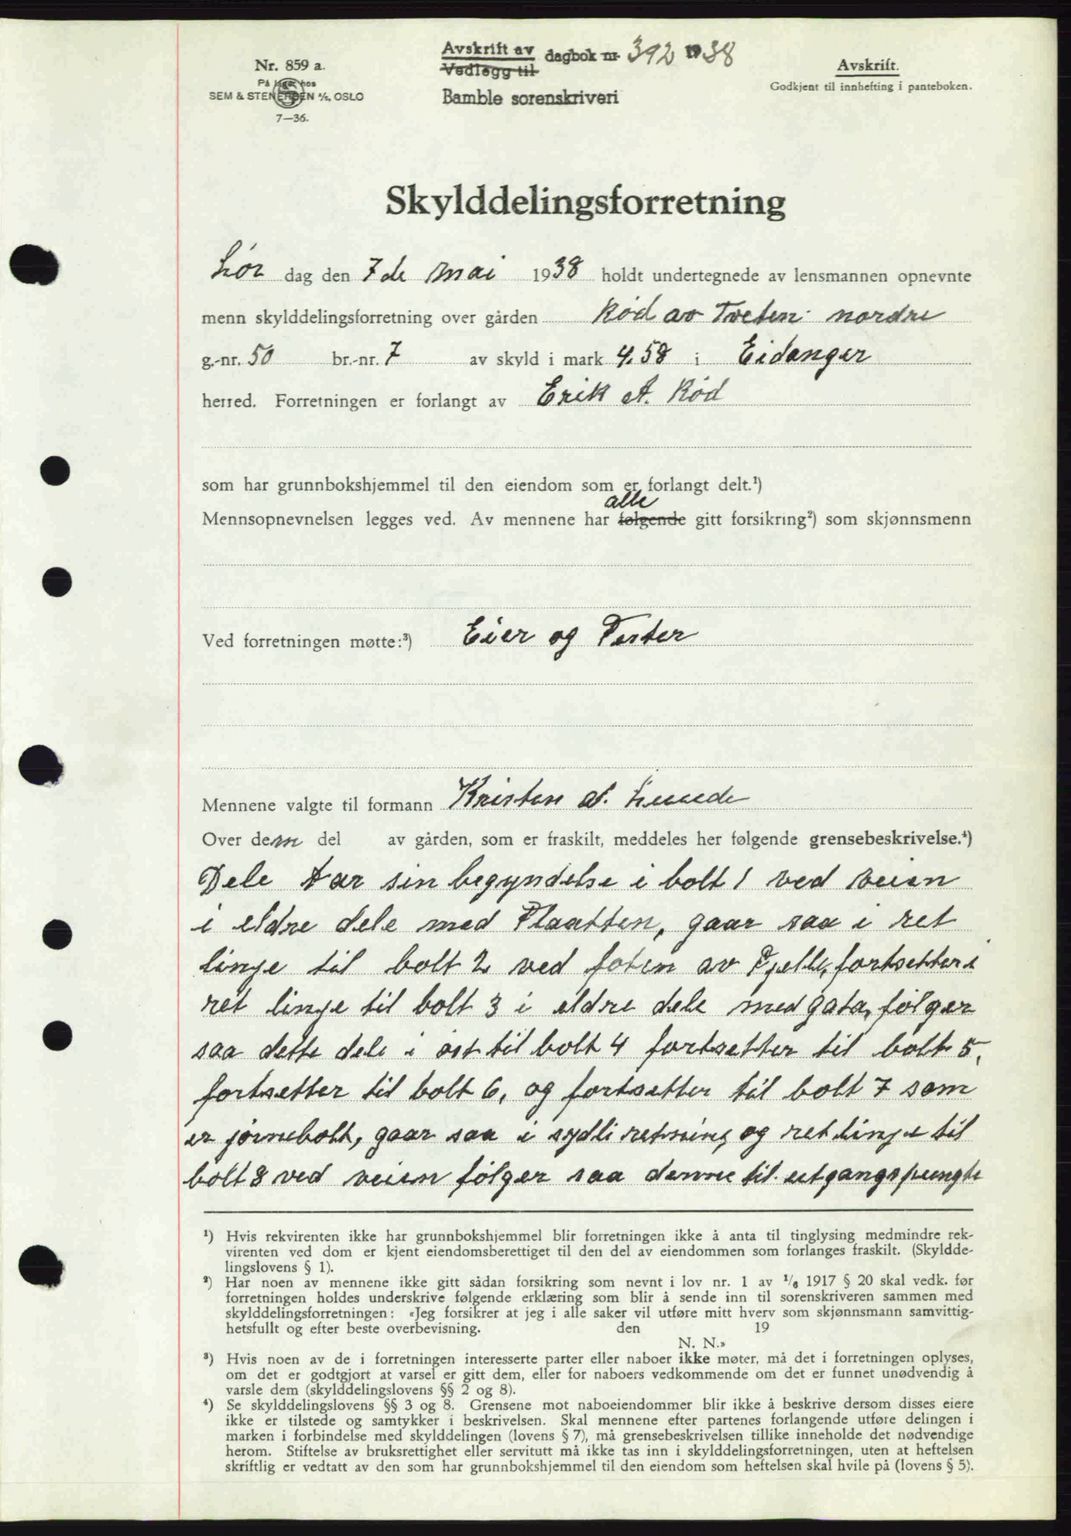 Nr. 859 a.
På lager hos
SEM & STENERSEN A/S, OSLO
7—36.
Avskrift av dagbok nr. 392 1938
Vedlegg til
Bamble sorenskriveri
Avskrift.
Godkjent til innhefting i panteboken.
Skylddelingsforretning
Lør dag den 7de mai 1938 holdt undertegnede av lensmannen opnevnte
menn skylddelingsforretning over gården Rød av Tveten nordre
g.-nr. 50 br.-nr. 7 av skyld i mark 4,58 i Eidanger
herred. Forretningen er forlangt av Erik A. Rød
som har grunnbokshjemmel til den eiendom som er forlangt delt.¹)
alle
Mennsopnevnelsen legges ved. Av mennene har følgende gitt forsikring²) som skjønnsmenn
Ved forretningen møtte:³) Eier og
Mennene valgte til formann Kristen A. Lunde
Over dem del av gården, som er fraskilt, meddeles her følgende grensebeskrivelse.⁴)
Dele tar sin begyndelse i bolt 1 ved veien
i eldre dele med Plaatten, gaar saa i ret
linje til bolt 2 ved foten av Fjelle, fortsetter i
ret linje til bolt 3 i eldre dele med gata, følger
saa dette dele i øst til bolt 4 fortsetter til bolt 5,
fortsetter til bolt 6, og fortsetter til bolt 7 som
er jørnebolt, gaar saa i sydli retning og ret linje til
bolt 8 ved veien følger saa denne til utgangspungte
¹) Hvis rekvirenten ikke har grunnbokshjemmel blir forretningen ikke å anta til tinglysing medmindre rek-
virenten ved dom er kjent eiendomsberettiget til den del av eiendommen som forlanges fraskilt. (Skyldde-
lingslovens § 1).
²) Har noen av mennene ikke gitt sådan forsikring som nevnt i lov nr. 1 av 1/6 1917 § 20 skal vedk. før
forretningen holdes underskrive følgende erklæring som blir å sende inn til sorenskriveren sammen med
skylddelingsforretningen: «Jeg forsikrer at jeg i alle saker vil utføre mitt hverv som skjønnsmann samvittig-
hetsfullt og efter beste overbevisning. den 19
N. N.»
³) Hvis noen av de i forretningen interesserte parter eller naboer ikke møter, må det i forretningen oplyses,
om det er godtgjort at varsel er gitt dem, eller for naboers vedkommende om det er funnet unødvendig å
varsle dem (skylddelingslovens §§ 2 og 8).
⁴) Se skylddelingslovens §§ 3 og 8. Grensene mot naboeiendommer blir ikke å beskrive dersom disses eiere
ikke er tilstede og samtykker i beskrivelsen. Skal mennene efter partenes forlangende utføre delingen i
marken i forbindelse med skylddelingen (lovens § 7), må grensebeskrivelsen tillike inneholde det nødvendige
herom. Stiftelse av bruksrettighet eller servitutt må ikke tas inn i skylddelingsforretningen, uten at heftelsen
skriftlig er vedtatt av den som har grunnbokshjemmel til den eiendom som heftelsen skal hvile på (lovens § 5).